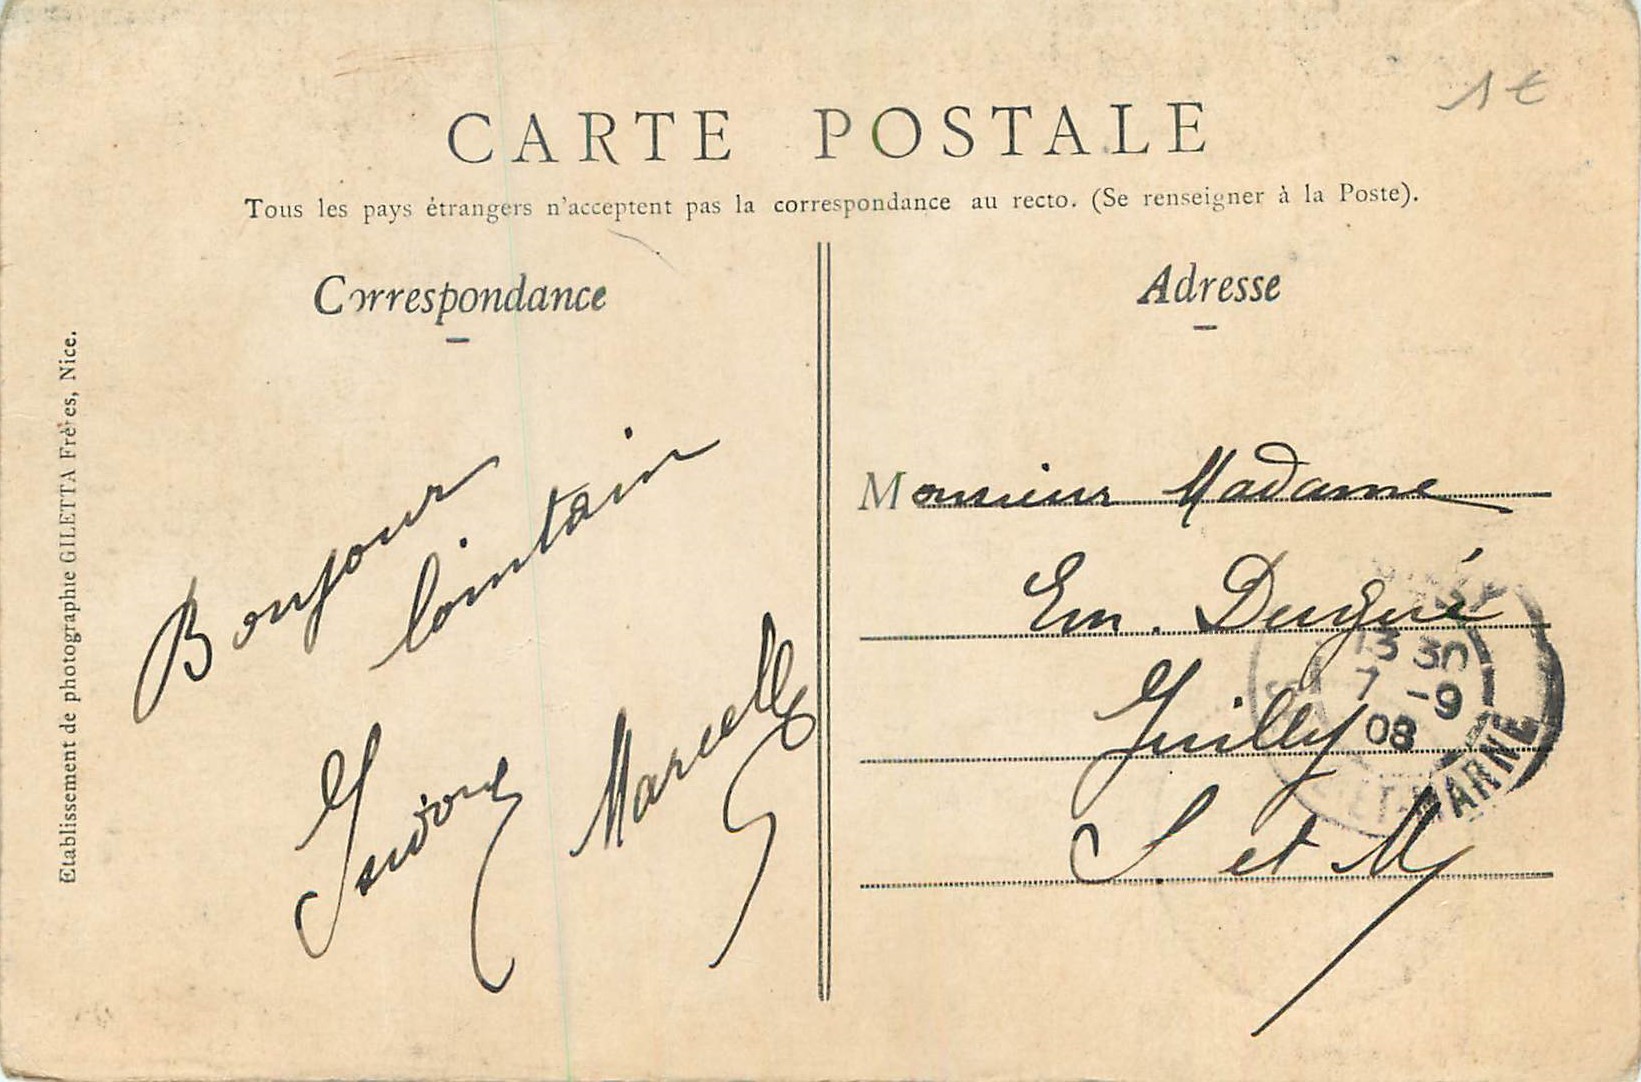 1€
CARTE POSTALE
Tous les pays étrangers n'acceptent pas la correspondance au recto. (Se renseigner à la Poste).
Correspondance
Bonjour
lointain
Marcelle
Adresse
Monsieur Madame
Em. Dugué
Juilly
S et M
13 30
7 -9
08
ET-MARNE
Etablissement de photographie GILETTA Frères, Nice.